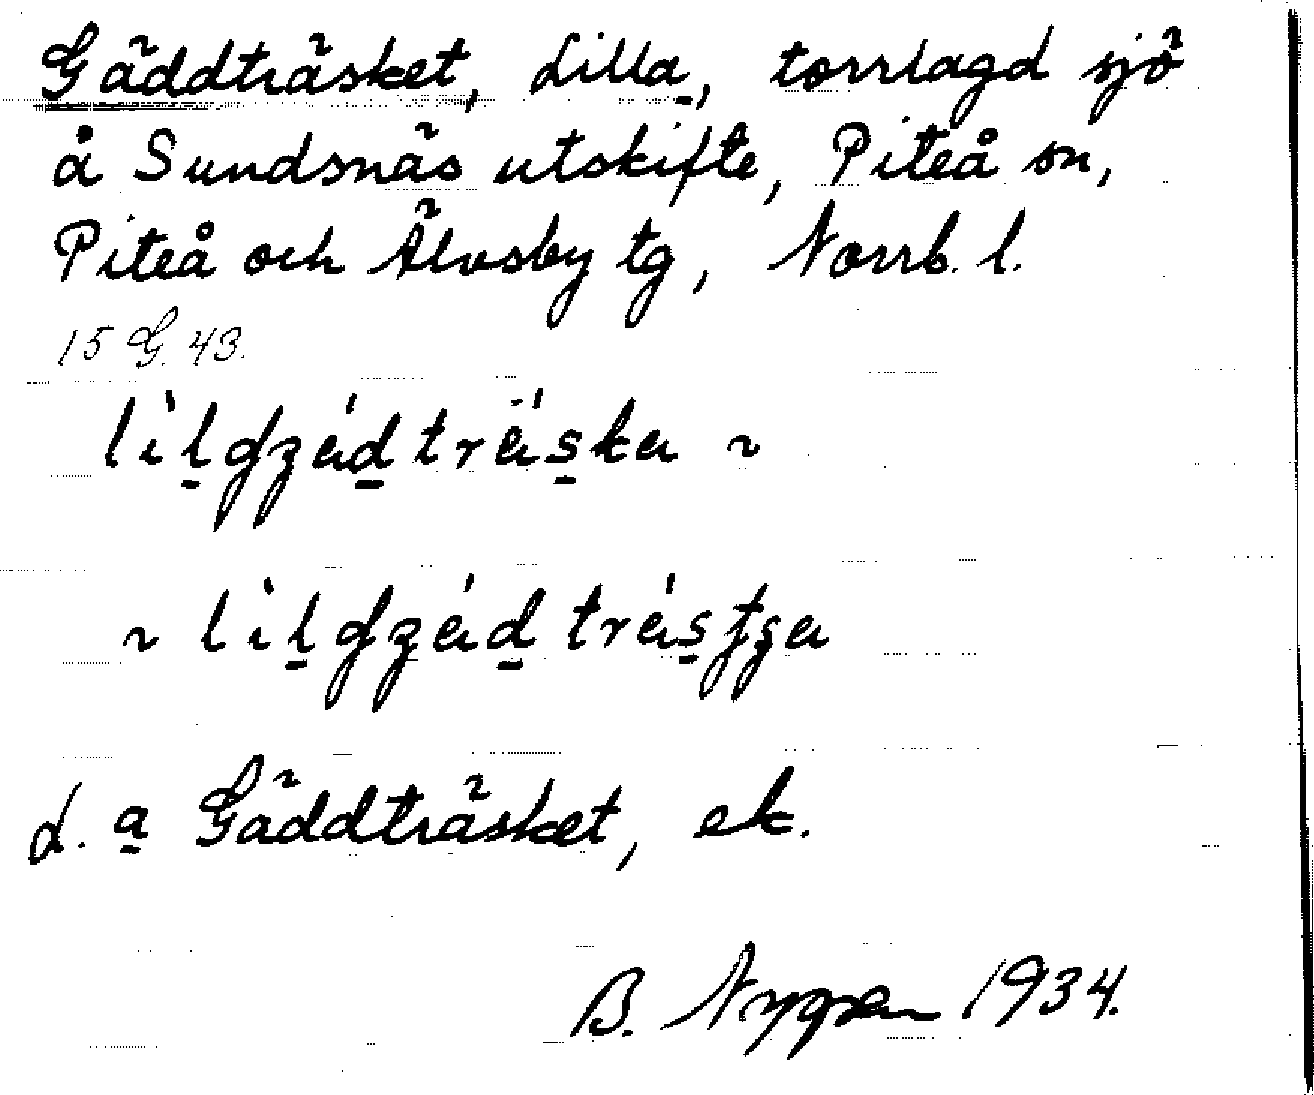 Gäddträsket, Lilla, torrlagd sjö
å Sundsnäs utskifte, Piteå sn,
Piteå och Älvsby tg, Norrb. l.
15 G. 43.
L. a Gäddträsket, ek.
B. Nygren 1934.